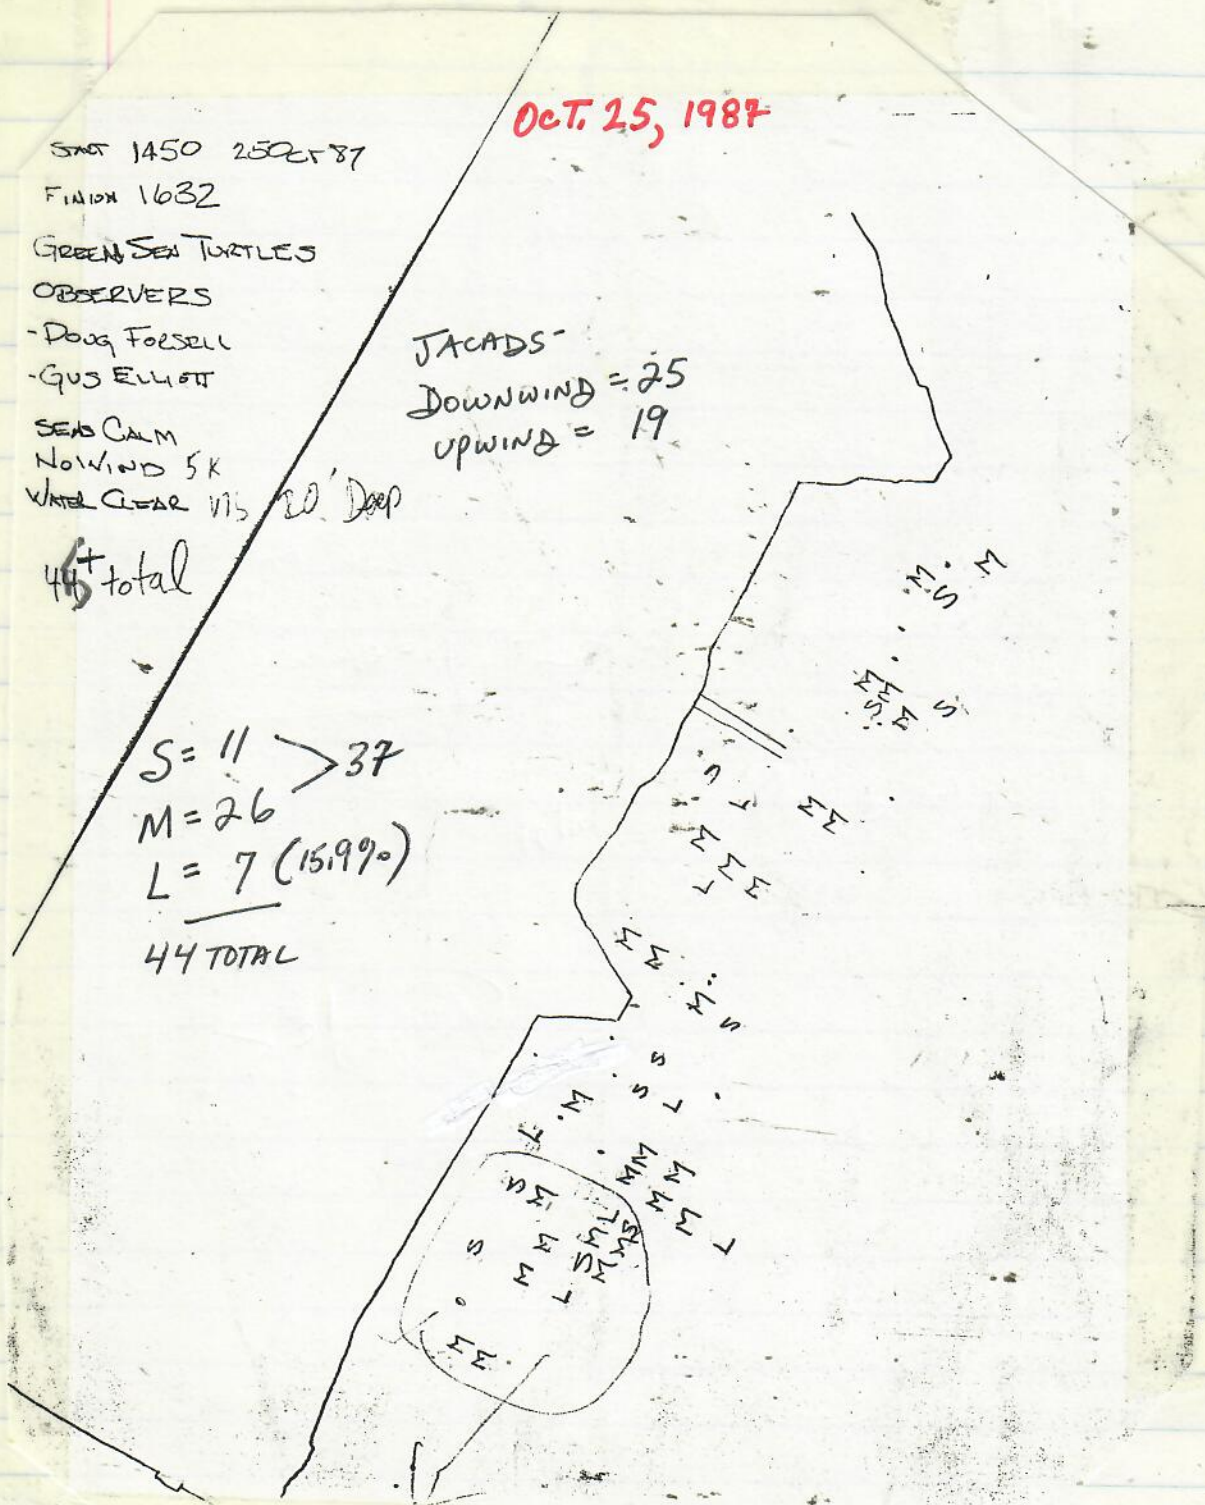 OCT. 25, 1987
START 1450 25 OCT 87
FINISH 1632
GREEN SEA TURTLES
OBSERVERS
-DOUG FORSELL
-GUS ELLIOTT
SEAS CALM
NO WIND 5K
WATER CLEAR VIS 20' Deep
total
JACADS-
DOWNWIND = 25
UPWIND = 19
S = 11 > 37
M = 26
L = 7 (15.9%)
44 TOTAL
M
M
S
M
M
M
S
M
M
S
S
L
M M
M
M M
L
M
M
M
S
S
S
L
M
L
M M
M M
M
L
S M
S
M
M
L
S M L
M M S
L
M M